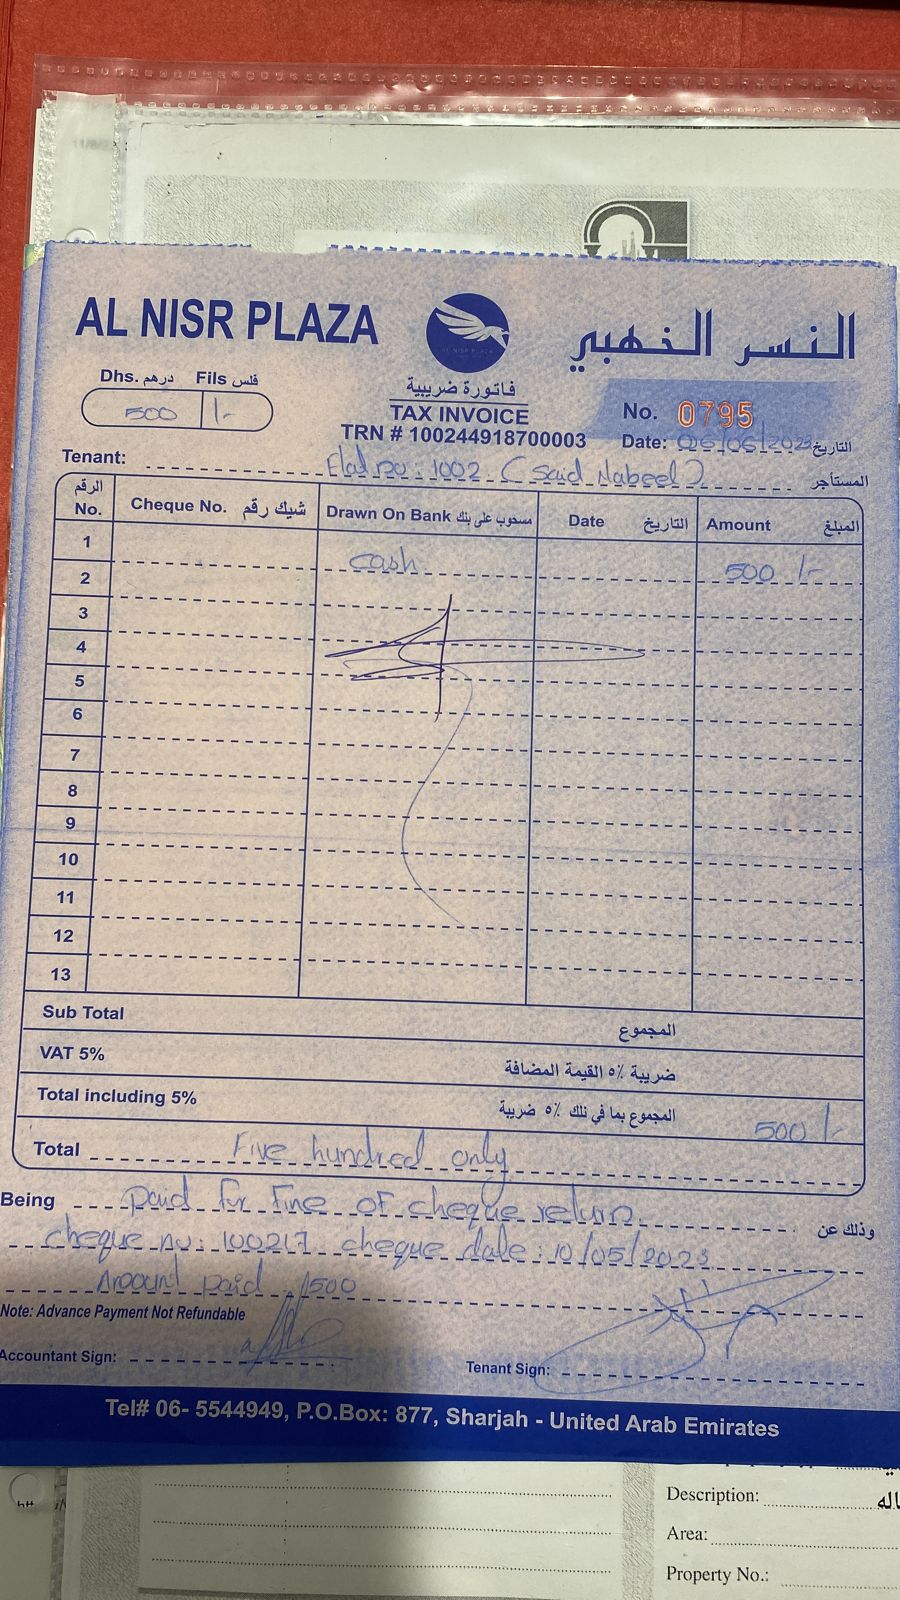 AL NISR PLAZA
النسر الذهبي
Dhs. درهم Fils فلس
500 /-
فاتورة ضريبية
TAX INVOICE
TRN # 100244918700003
No. 0795
Date: 06/06/2023 التاريخ
Tenant: Flat no: 1002 (Said Nabeel) المستأجر
الرقم No. Cheque No. شيك رقم Drawn On Bank مسحوب على بنك Date التاريخ Amount المبلغ
1
cash 500 /-
2
3
4
5
6
7
8
9
10
11
12
13
Sub Total المجموع
VAT 5% ضريبة ٥٪ القيمة المضافة
Total including 5% المجموع بما في ذلك ٥٪ ضريبة 500 /-
Total Five hundred only
Being paid for Fine of cheque return وذلك عن
cheque no: 100217 cheque date: 10/05/2023
Amount paid 500
Note: Advance Payment Not Refundable
Accountant Sign: Tenant Sign:
Tel# 06- 5544949, P.O.Box: 877, Sharjah - United Arab Emirates
Description:
Area:
Property No.: